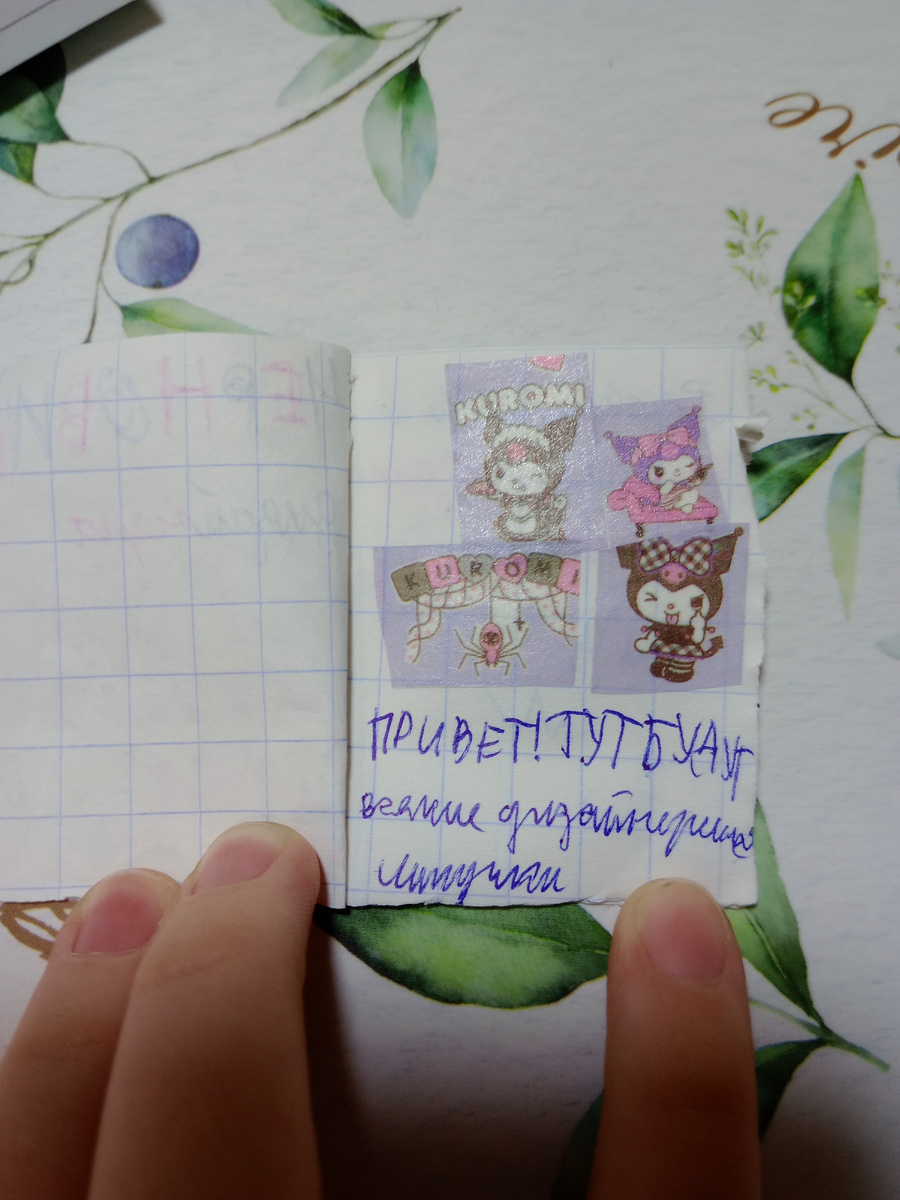 ire
KUROMI
KUROMI
ПРИВЕТ! ТУТ БУДУТ
всякие дизайнерские
липучки